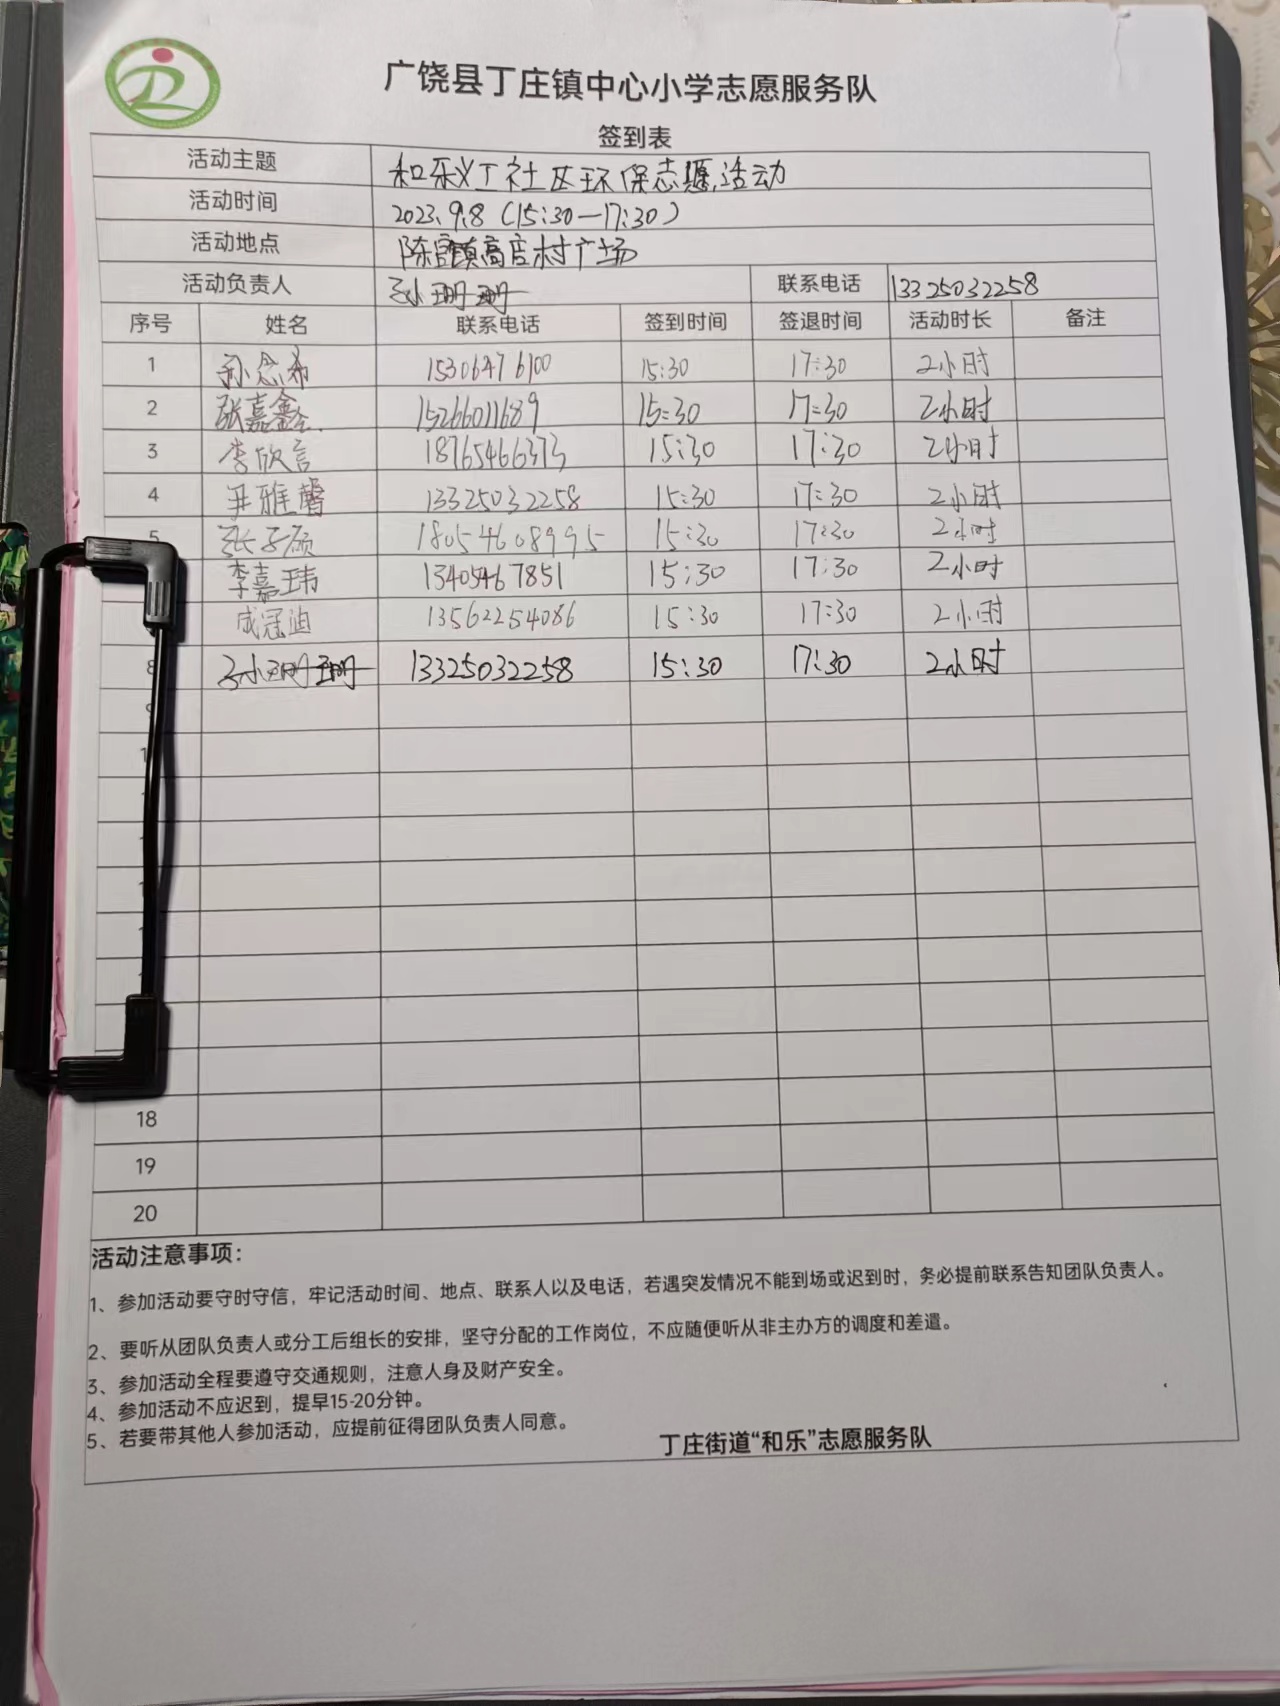 广饶县丁庄镇中心小学志愿服务队
签到表
活动主题 和乐义工社区环保志愿活动
活动时间 2023.9.8（15:30—17:30）
活动地点 陈官镇高店村广场
活动负责人 孙珊珊 联系电话 13325032258
序号 姓名 联系电话 签到时间 签退时间 活动时长 备注
1 孙念希 15306476100 15:30 17:30 2小时
2 张嘉鑫 15266011689 15:30 17:30 2小时
3 李欣言 18765466373 15:30 17:30 2小时
4 尹雅馨 13325032258 15:30 17:30 2小时
5 张子硕 18054608995 15:30 17:30 2小时
李嘉玮 13405467851 15:30 17:30 2小时
成冠迪 13562254086 15:30 17:30 2小时
8 孙珊珊 13325032258 15:30 17:30 2小时
9
18
19
20
活动注意事项：
1、参加活动要守时守信，牢记活动时间、地点、联系人以及电话，若遇突发情况不能到场或迟到时，务必提前联系告知团队负责人。
2、要听从团队负责人或分工后组长的安排，坚守分配的工作岗位，不应随便听从非主办方的调度和差遣。
3、参加活动全程要遵守交通规则，注意人身及财产安全。
4、参加活动不应迟到，提早15-20分钟。
5、若要带其他人参加活动，应提前征得团队负责人同意。
丁庄街道“和乐”志愿服务队